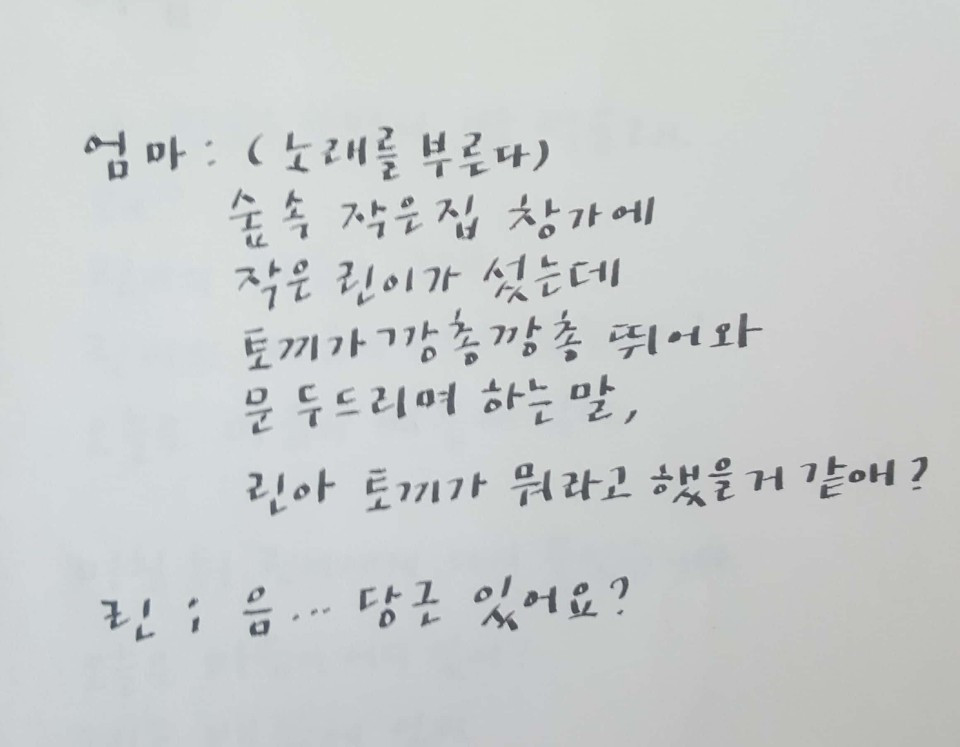 엄마 : (노래를 부른다)
숲속 작은집 창가에
작은 린이가 섰는데
토끼가 깡총깡총 뛰어와
문 두드리며 하는말,
린아 토끼가 뭐라고 했을거 같애?
린 : 음... 당근 있어요?